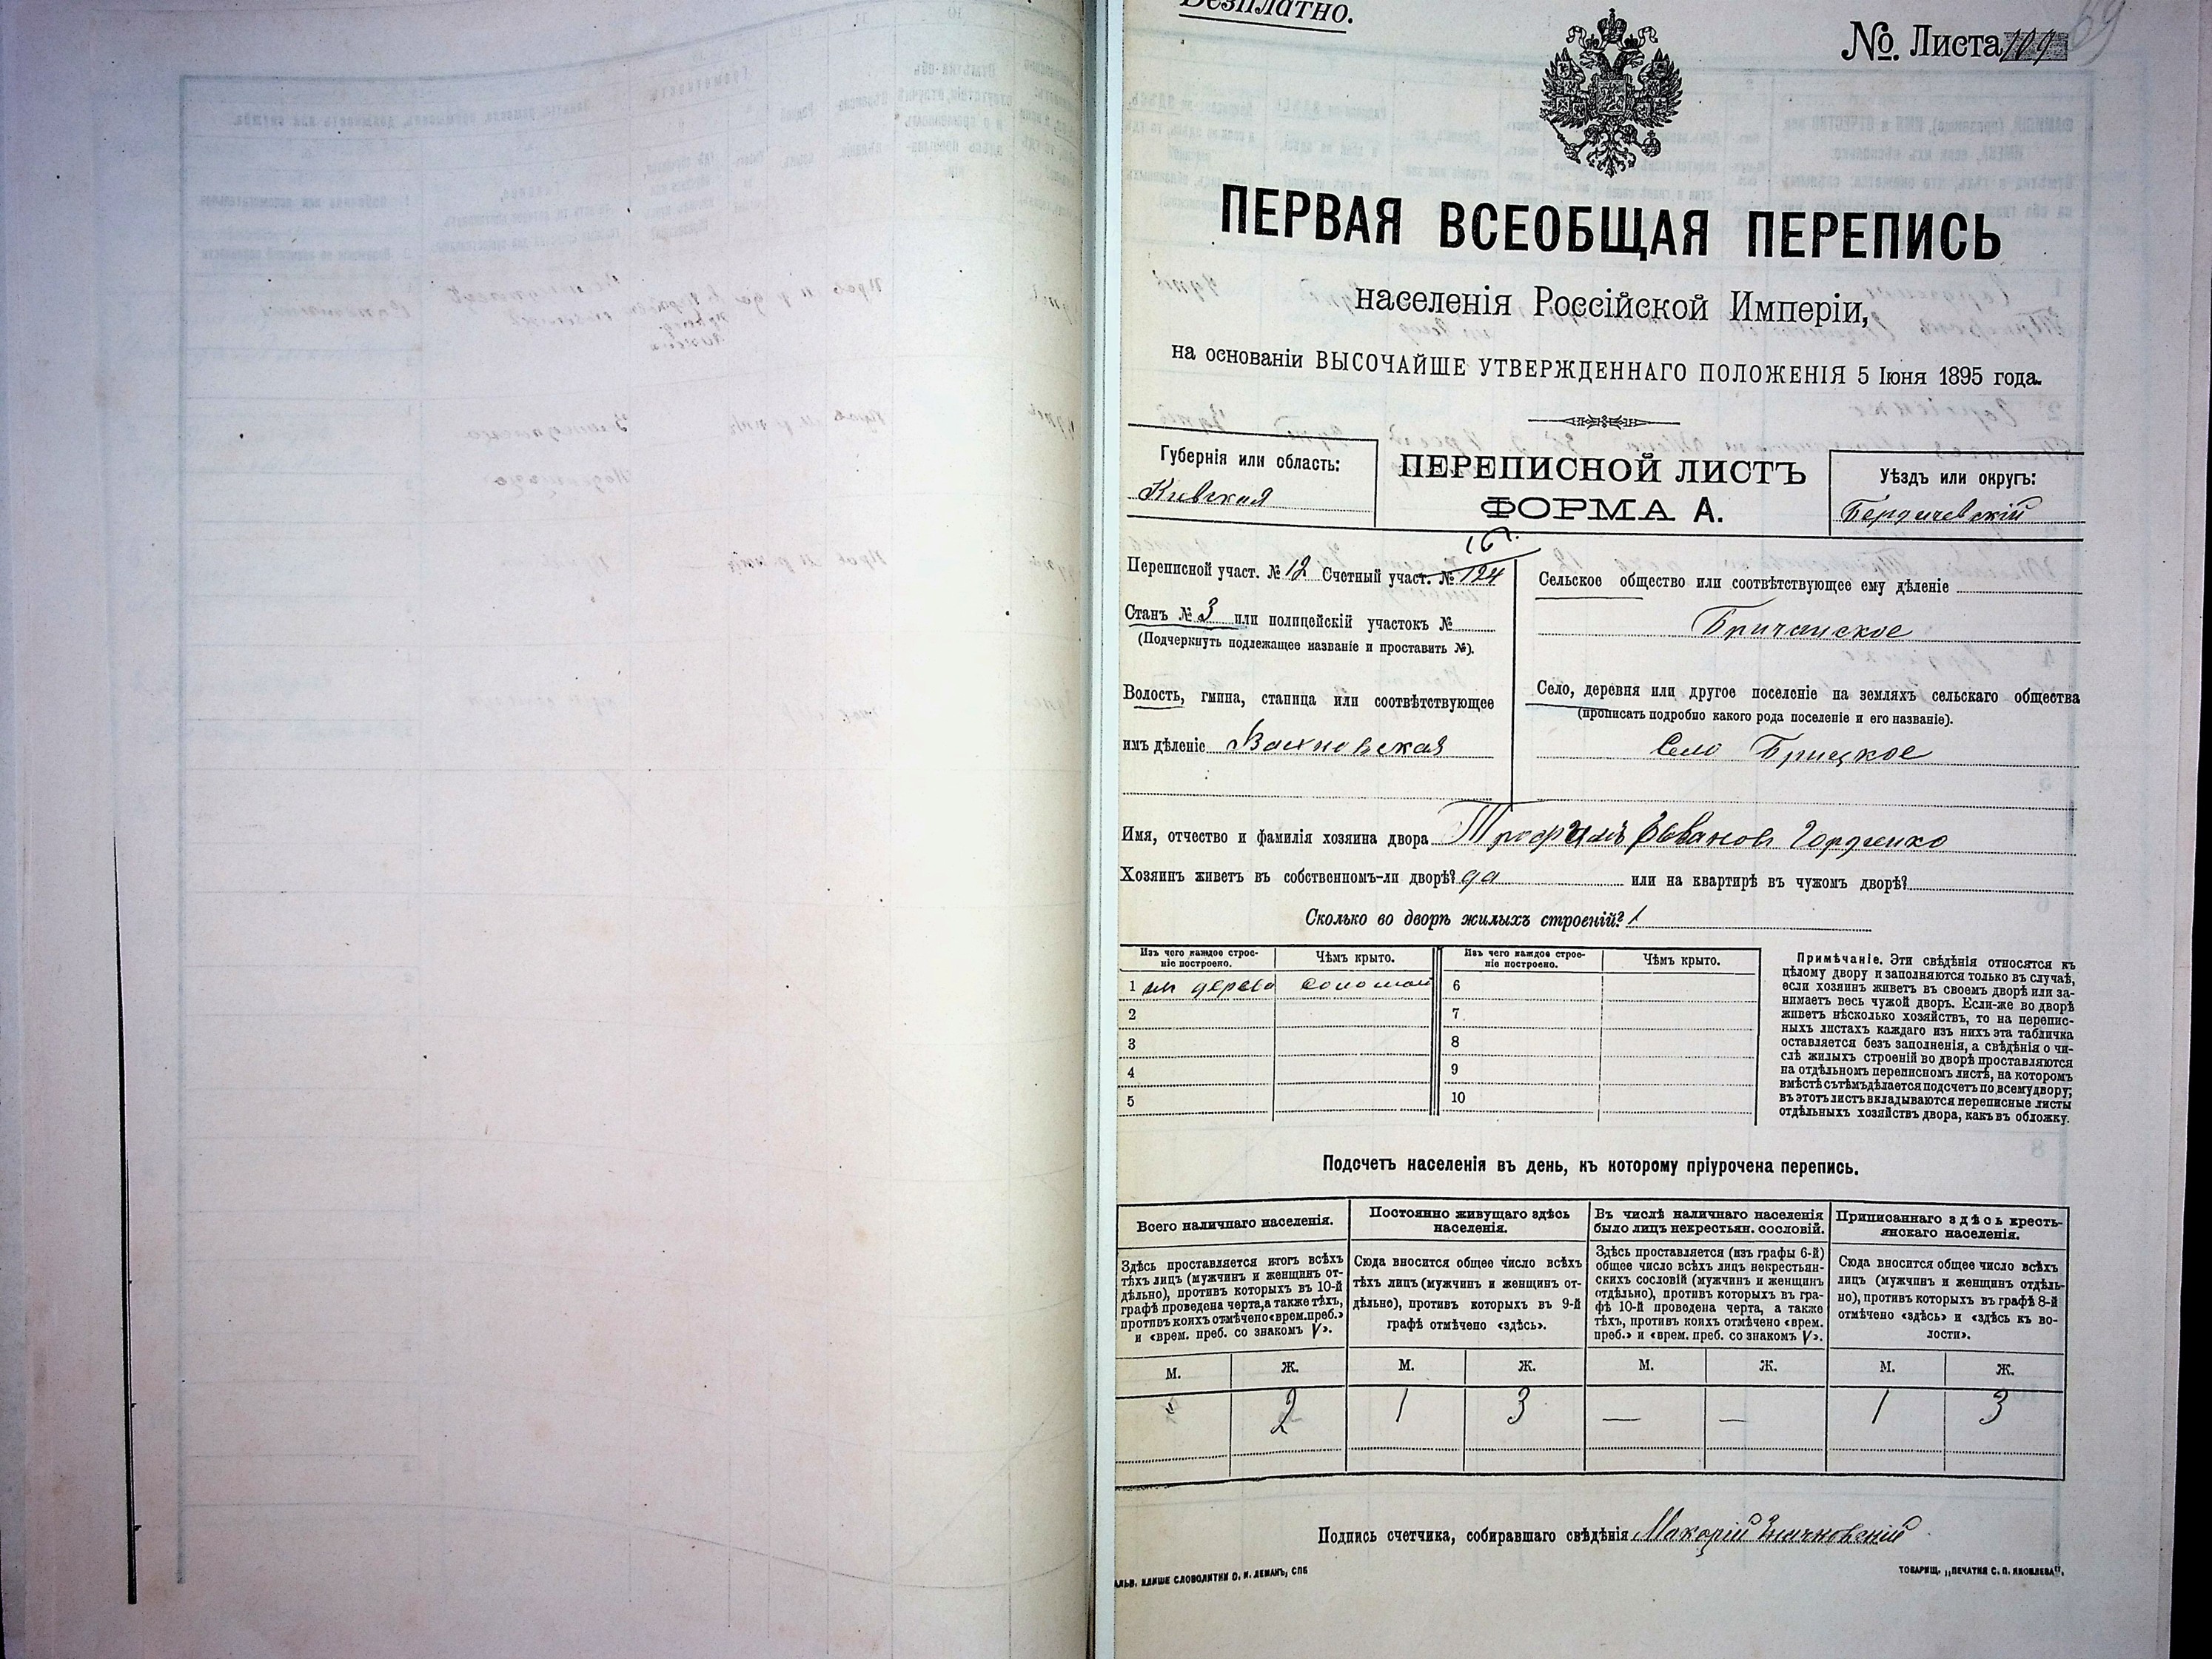 Безплатно.
№ Листа 109
69
ПЕРВАЯ ВСЕОБЩАЯ ПЕРЕПИСЬ
населенія Россійской Имперіи,
на основаніи ВЫСОЧАЙШЕ УТВЕРЖДЕННАГО ПОЛОЖЕНІЯ 5 Іюня 1895 года.
Губернія или область:
Киевская
ПЕРЕПИСНОЙ ЛИСТЪ
ФОРМА А.
Уѣздъ или округъ:
Бердичевскій
Переписной участ. № 12 Счетный участ. № 124
Станъ № 3 или полицейскій участокъ №
(Подчеркнуть подлежащее названіе и проставить №).
Волость, гмина, станица или соотвѣтствующее
имъ дѣленіе Вахновская
Сельское общество или соотвѣтствующее ему дѣленіе
Бричанское
Село, деревня или другое поселеніе на земляхъ сельскаго общества
(прописать подробно какого рода поселеніе и его названіе).
Село Брицкое
Имя, отчество и фамилія хозяина двора Трофимъ Ивановъ Гордиенко
Хозяинъ живетъ въ собственномъ-ли дворѣ? да или на квартирѣ въ чужомъ дворѣ?
Сколько во дворѣ жилыхъ строеній? 1
Изъ чего каждое строе-
ніе построено.
Чѣмъ крыто.
Изъ чего каждое строе-
ніе построено.
Чѣмъ крыто.
1 из дерева соломой 6
2 7
3 8
4 9
5 10
Примѣчаніе. Эти свѣдѣнія относятся къ
цѣлому двору и заполняются только въ случаѣ,
если хозяинъ живетъ въ своемъ дворѣ или за-
нимаетъ весь чужой дворъ. Если-же во дворѣ
живетъ нѣсколько хозяйствъ, то на перепис-
ныхъ листахъ каждаго изъ нихъ эта табличка
оставляется безъ заполненія, а свѣдѣнія о чи-
слѣ жилыхъ строеній во дворѣ проставляются
на отдѣльномъ переписномъ листѣ, на которомъ
вмѣстѣ съ тѣмъ дѣлается подсчетъ по всему двору;
въ этотъ листъ вкладываются переписные листы
отдѣльныхъ хозяйствъ двора, какъ въ обложку.
Подсчетъ населенія въ день, къ которому пріурочена перепись.
Всего наличнаго населенія.
Здѣсь проставляется итогъ всѣхъ
тѣхъ лицъ (мужчинъ и женщинъ от-
дѣльно), противъ которыхъ въ 10-й
графѣ проведена черта, а также тѣхъ,
противъ коихъ отмѣчено «врем. преб.»
и «врем. преб. со знакомъ V».
Постоянно живущаго здѣсь
населенія.
Сюда вносится общее число всѣхъ
тѣхъ лицъ (мужчинъ и женщинъ от-
дѣльно), противъ которыхъ въ 9-й
графѣ отмѣчено «здѣсь».
Въ числѣ наличнаго населенія
было лицъ некрестьян. сословій.
Здѣсь проставляется (изъ графы 6-й)
общее число всѣхъ лицъ некрестьян-
скихъ сословій (мужчинъ и женщинъ
отдѣльно), противъ которыхъ въ гра-
фѣ 10-й проведена черта, а также
тѣхъ, противъ коихъ отмѣчено «врем.
преб.» и «врем. преб. со знакомъ V».
Приписаннаго здѣсь кресть-
янскаго населенія.
Сюда вносится общее число всѣхъ
лицъ (мужчинъ и женщинъ отдѣль-
но), противъ которыхъ въ графѣ 8-й
отмѣчено «здѣсь» и «здѣсь къ во-
лости».
М. Ж. М. Ж. М. Ж. М. Ж.
2 1 3 — — 1 3
Подпись счетчика, собиравшаго свѣдѣнія Макарій
КЛИШЕ СЛОВОЛИТНИ О. И. ЛЕМАНЪ, СПБ
ТОВАРИЩ. „ПЕЧАТНЯ С. П. ЯКОВЛЕВА".